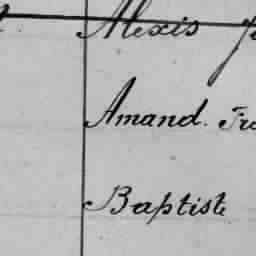 Alexis
Amand. Fra
Baptiste